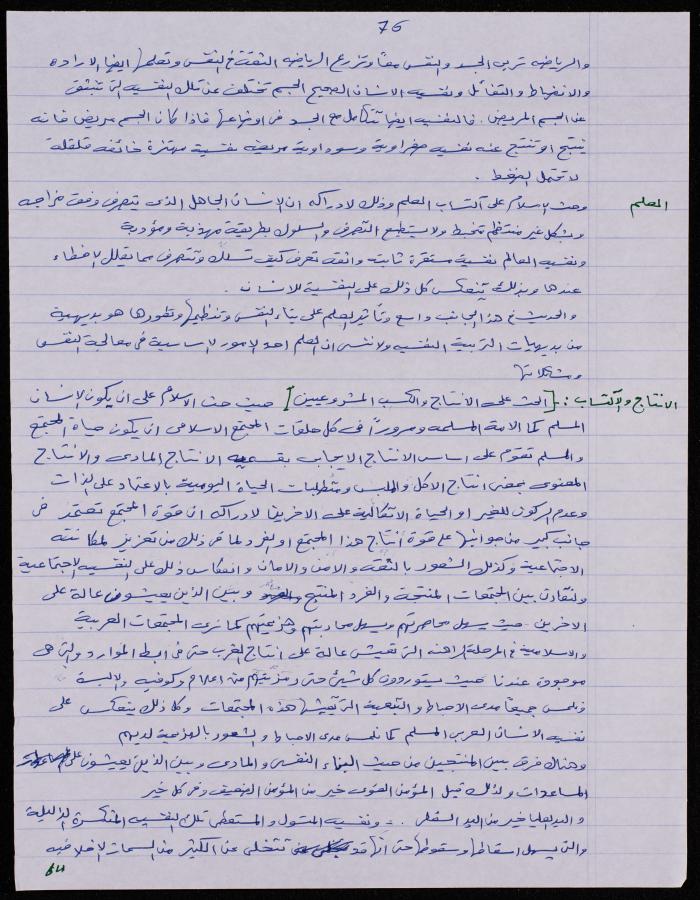 76
والرياضه تربي الجسد والنفس معاً وتزرع الرياضه الثقة في النفس وتعلم ايضا الاراده
والانضباط والتفائل ونفسية الانسان الصحيح الجسم تختلف عن تلك النفسيه التي تنبثق
عن الجسم المريض. فالنفسيه ايضا تتكامل مع الجسد في اوضاعها فاذا كان الجسم مريض فانه
ينتج او تنتج عنه نفسيه صفراوية وسوداوية مريضه نفسية مهتزة خائفه قلقلة
لا تحتمل الضغط .
العلم
وحث الاسلام على اكتساب العلم وذلك لادراكه ان الانسان الجاهل الذي يتصرف وفق مزاجه
وبشكل غير منتظم تخبط ولا يستطيع التصرف والسلوك بطريقة مهذبة ومؤدبة
ونفسية العالم نفسية مستقرة ثابتة واثقه تعرف كيف تسلك وتتصرف مما يقلل الاخطاء
عندها وبذلك ينعكس كل ذلك على النفسية للانسان .
والحديث في هذا الجانب واسع وتأثير العلم على بناء النفس وتنظيمها وتطورها هو بديهية
من بديهيات التربية النفسيه ولا ننسى ان العلم احد الامور الاساسية في معالجة النفس
ومشكلاتها
الانتاج والاكتساب : [الحث على الانتاج والكسب المشروعيين] حيث حث الاسلام على ان يكون الانسان
المسلم كما الامة المسلمه ومروراً في كل حلقات المجتمع الاسلامي ان يكون حياة المجتمع
والمسلم تقوم على اساس الانتاج الايجاب بقسميه الانتاج المادي والانتاج
المعنوي بمعنى انتاج الاكل والملبس ومتطلبات الحياة اليومية بالاعتماد على الذات
وعدم الركون للغير او الحياة الاتكالية على الاخرين لادراكه ان قوة المجتمع تعتمد في
جانب كبير من جوانبها على قوة انتاج هذا المجتمع او الفرد لما في ذلك من تعزيز لمكانته
الاجتماعية وكذلك الشعور بالثقه والامن والامان وانعكاس ذلك على النفسيه الاجتماعية
ولنقارن بين المجتمعات المنتجة والفرد المنتج وبين الذين يعيشون عالة على
الاخرين حيث يسهل محاصرتهم ويسهل محاربتهم وهزيمتهم كما نرى المجتمعات العربية
والاسلامية في المرحلة الراهنه التي تعيش عالة على انتاج الغرب حتى في ابسط الموارد والتي هي
موجودة عندنا حيث يستوردون كل شيئ حتى رمزيتهم من اعلام وكوفيه والبسة
ونلمس جميعاً مدى الاحباط والتبعية التي تعيشها هذه المجتمعات وكل ذلك ينعكس على
نفسيه الانسان العربي المسلم كما نلمس مدى الاحباط والشعور بالهزيمة لديهم
وهناك فرق بين المنتجين من حيث البناء النفسي والمادي وبين الذين يعيشون على
المساعدات ولذلك قيل المؤمن القوي خير من المؤمن الضعيف وفي كل خير
واليد العليا خير من اليد السفلى .. ونفسيه المتسول والمستعطي تلك النفسيه المنكسرة الذليلة
والتي يسهل اسقاطها وسقوطها حتى انها قد تتخلى عن الكثير من السمات الاخلاقيه
64